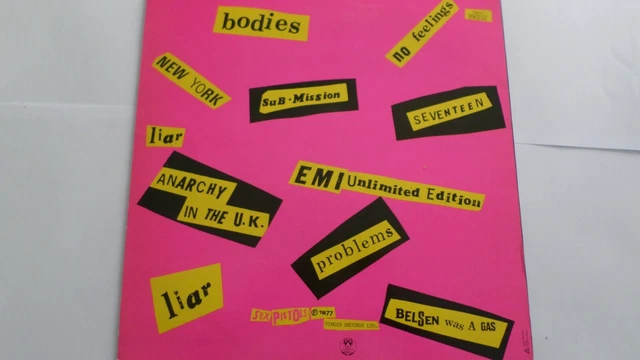 bodies
no feelings
NEW YORK
SuB·Mission
SEVENTEEN
liar
EMI Unlimited Edition
ANARCHY
IN THE U.K.
problems
liar
SEX PISTOLS ℗ 1977
VIRGIN RECORDS LTD.
BELSEN was A GAS